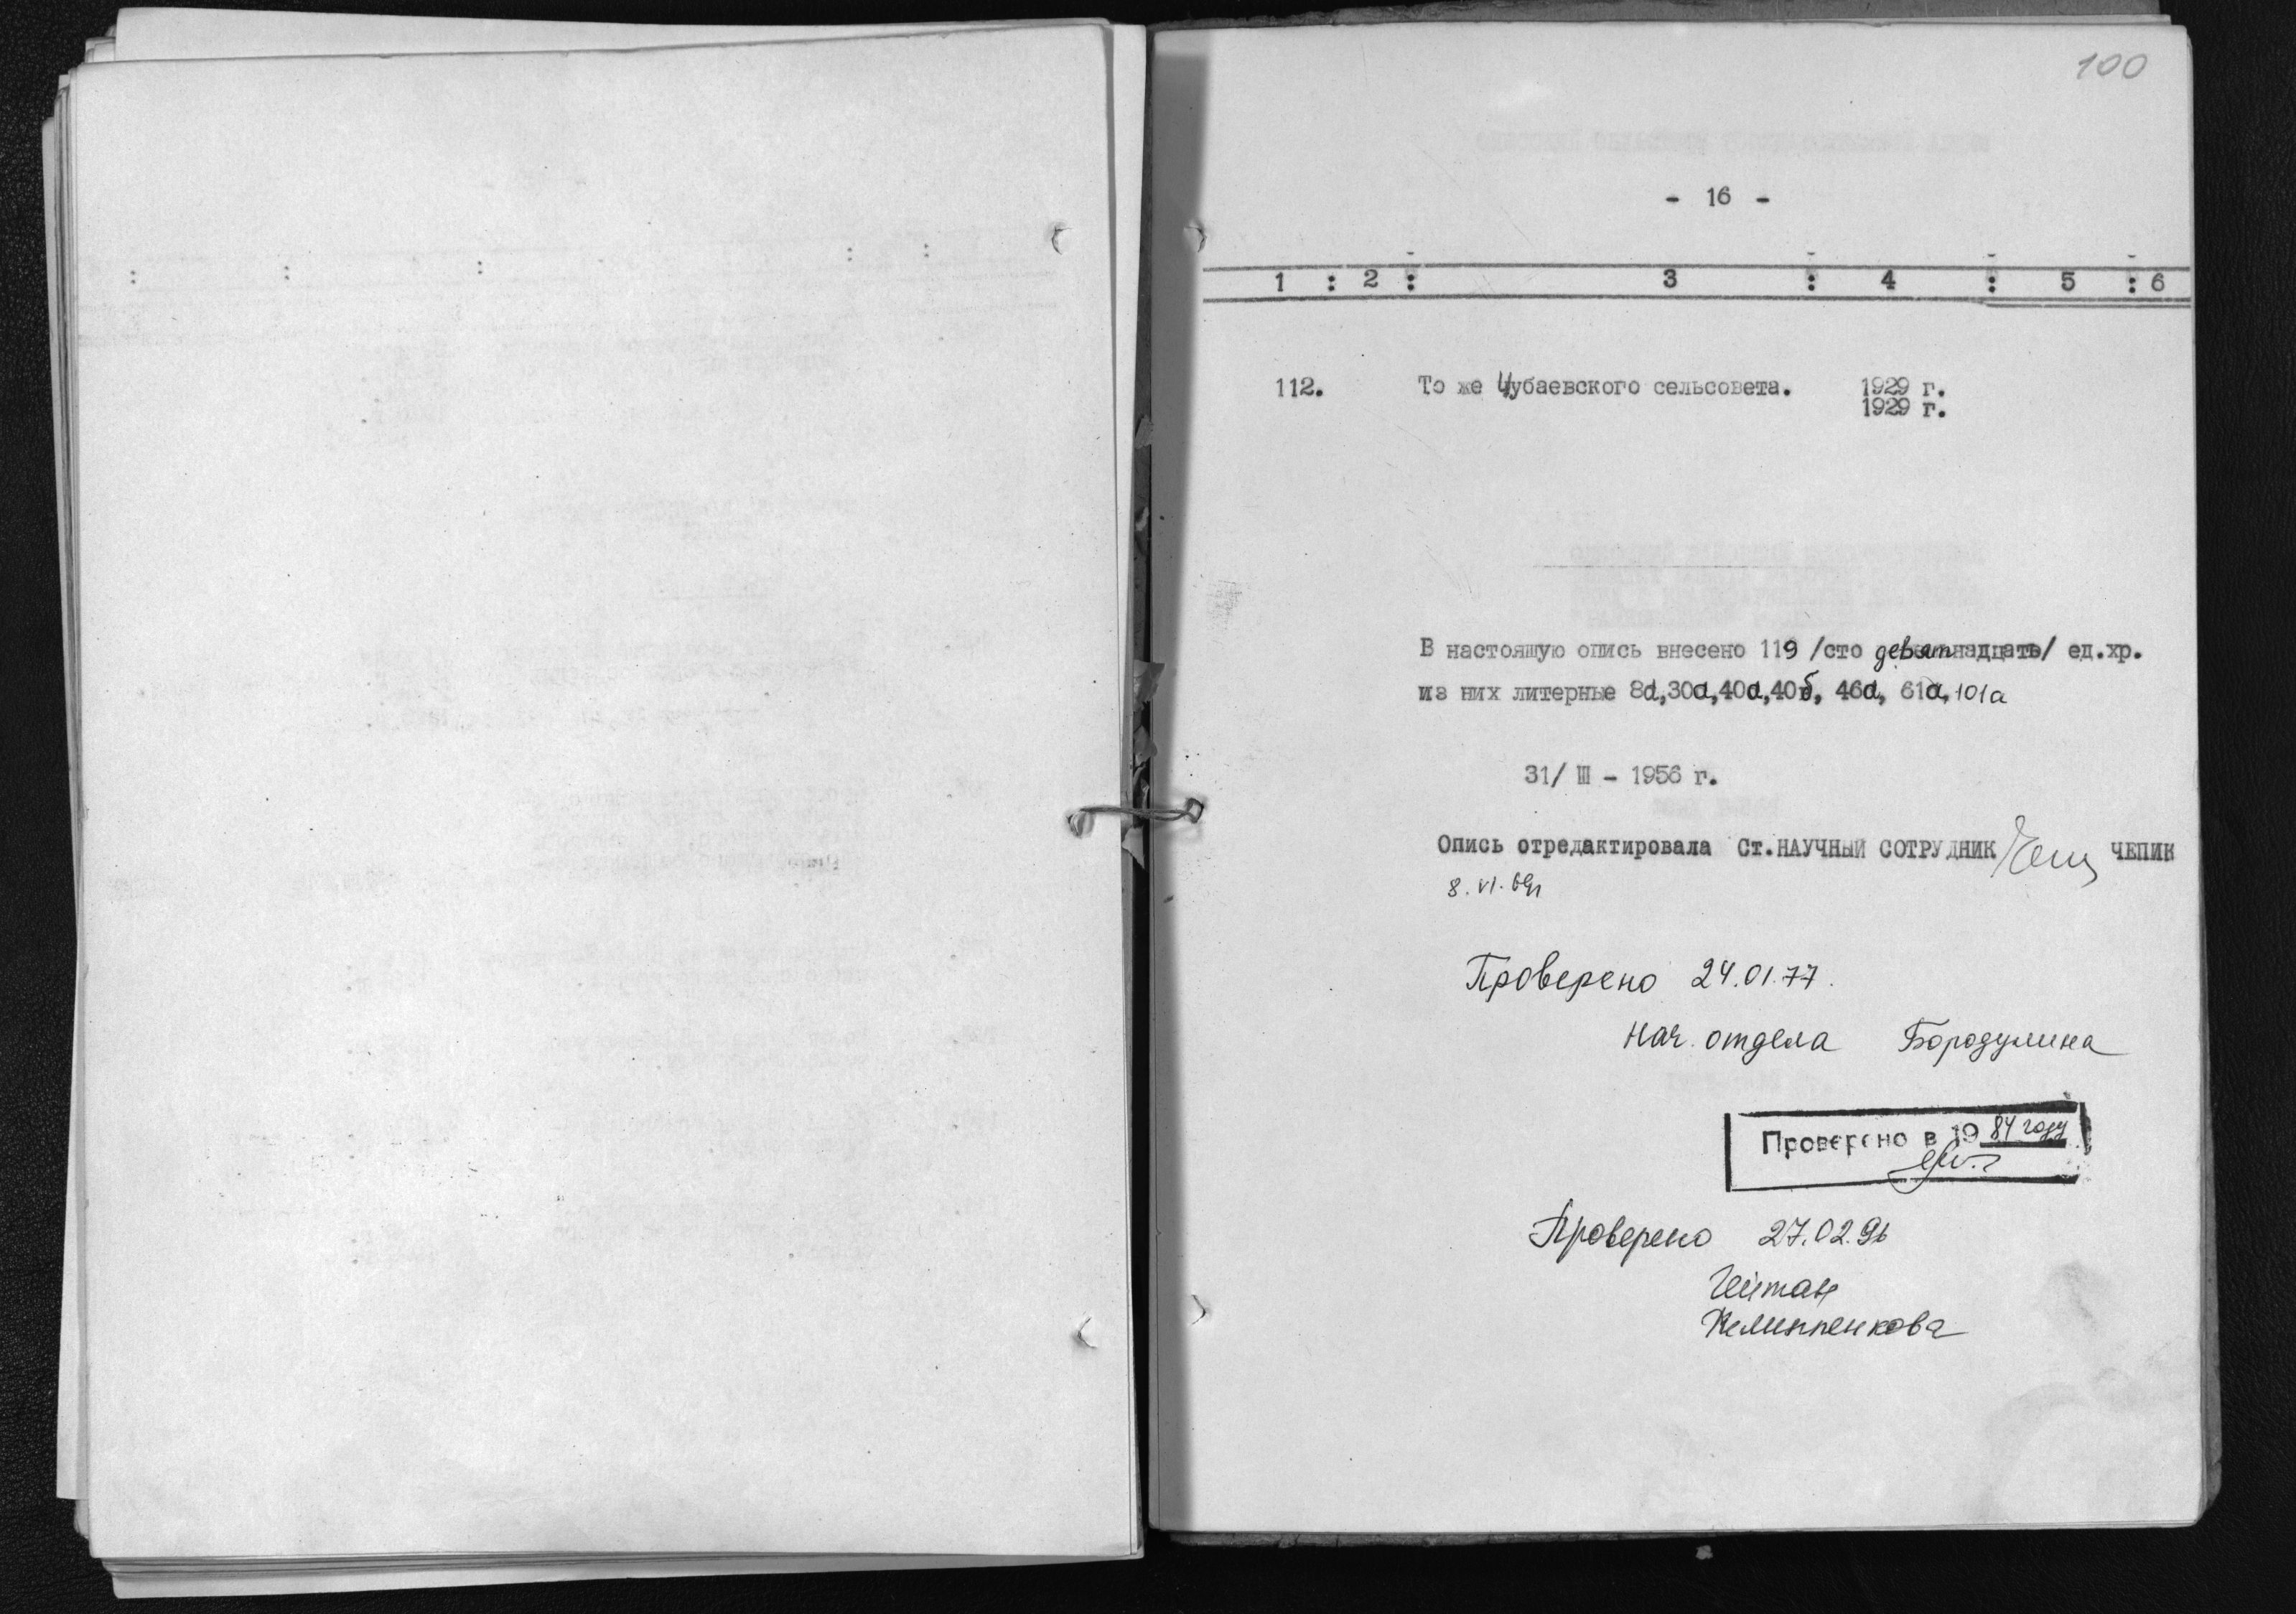 100
- 16 -
1 : 2 : 3 : 4 : 5 : 6
112. То же Цубаевского сельсовета. 1929 г.
1929 г.
В настоящую опись внесено 119 /сто девятнадцать/ ед.хр.
из них литерные 8а,30а,40а,40б, 46а, 61а,101а
31/ III - 1956 г.
Опись отредактировала Ст.НАУЧНЫЙ СОТРУДНИК ЧЕПИК
8.VI.69г
Проверено 24.01.77.
Нач. отдела Бородулина
Проверено в 1984 году
Проверено 27.02.96